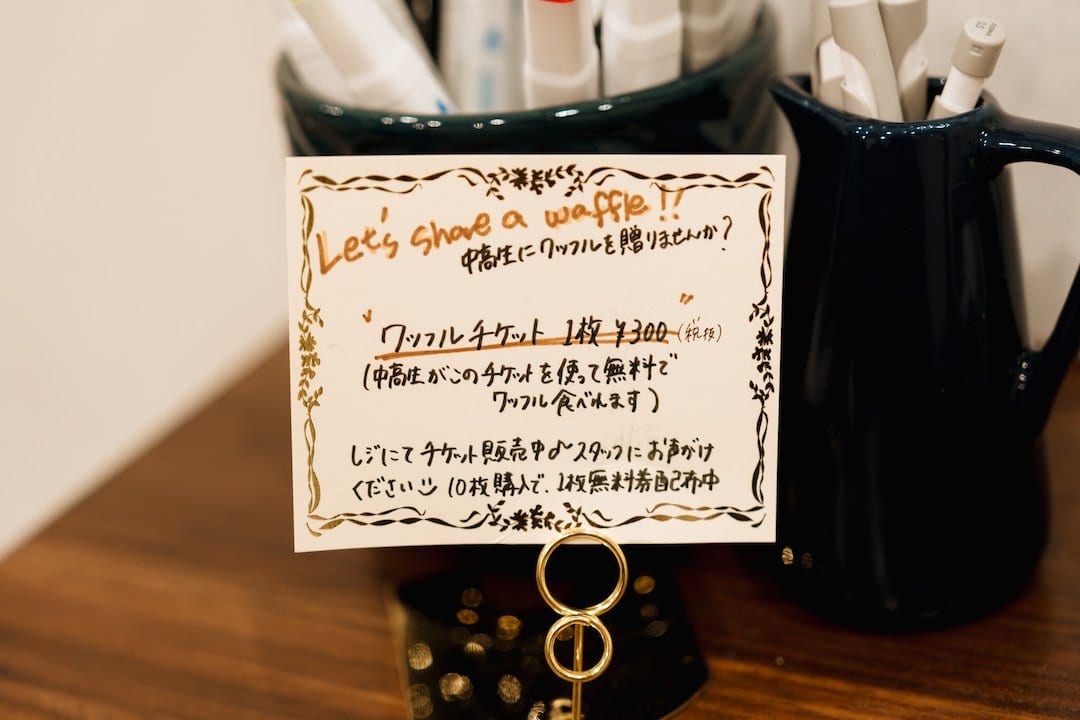 Let's share a waffle!!
中高生にワッフルを贈りませんか?
"ワッフルチケット 1枚 ¥300"(税抜)
(中高生がこのチケットを使って無料で
ワッフル食べれます)
レジにてチケット販売中♪スタッフにお声がけ
ください 10枚購入で、1枚無料券配布中